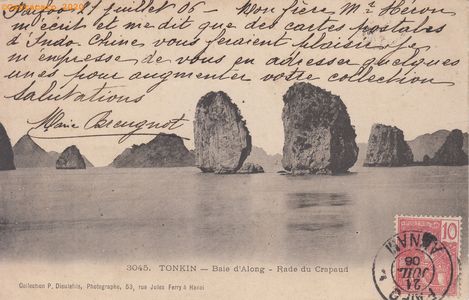 juillet 06 - Mon frère Mr Heron
m'écrit et me dit que des cartes postales
d'Indo Chine vous feraient plaisir. Je
m'empresse de vous en adresser quelques
unes pour augmenter votre collection
Salutations
3045. TONKIN — Baie d'Along - Rade du Crapaud
10
ANNAM
21
JUIL
06
Collection P. Dieulefils, Photographe, 53, rue Jules Ferry à Hanoï